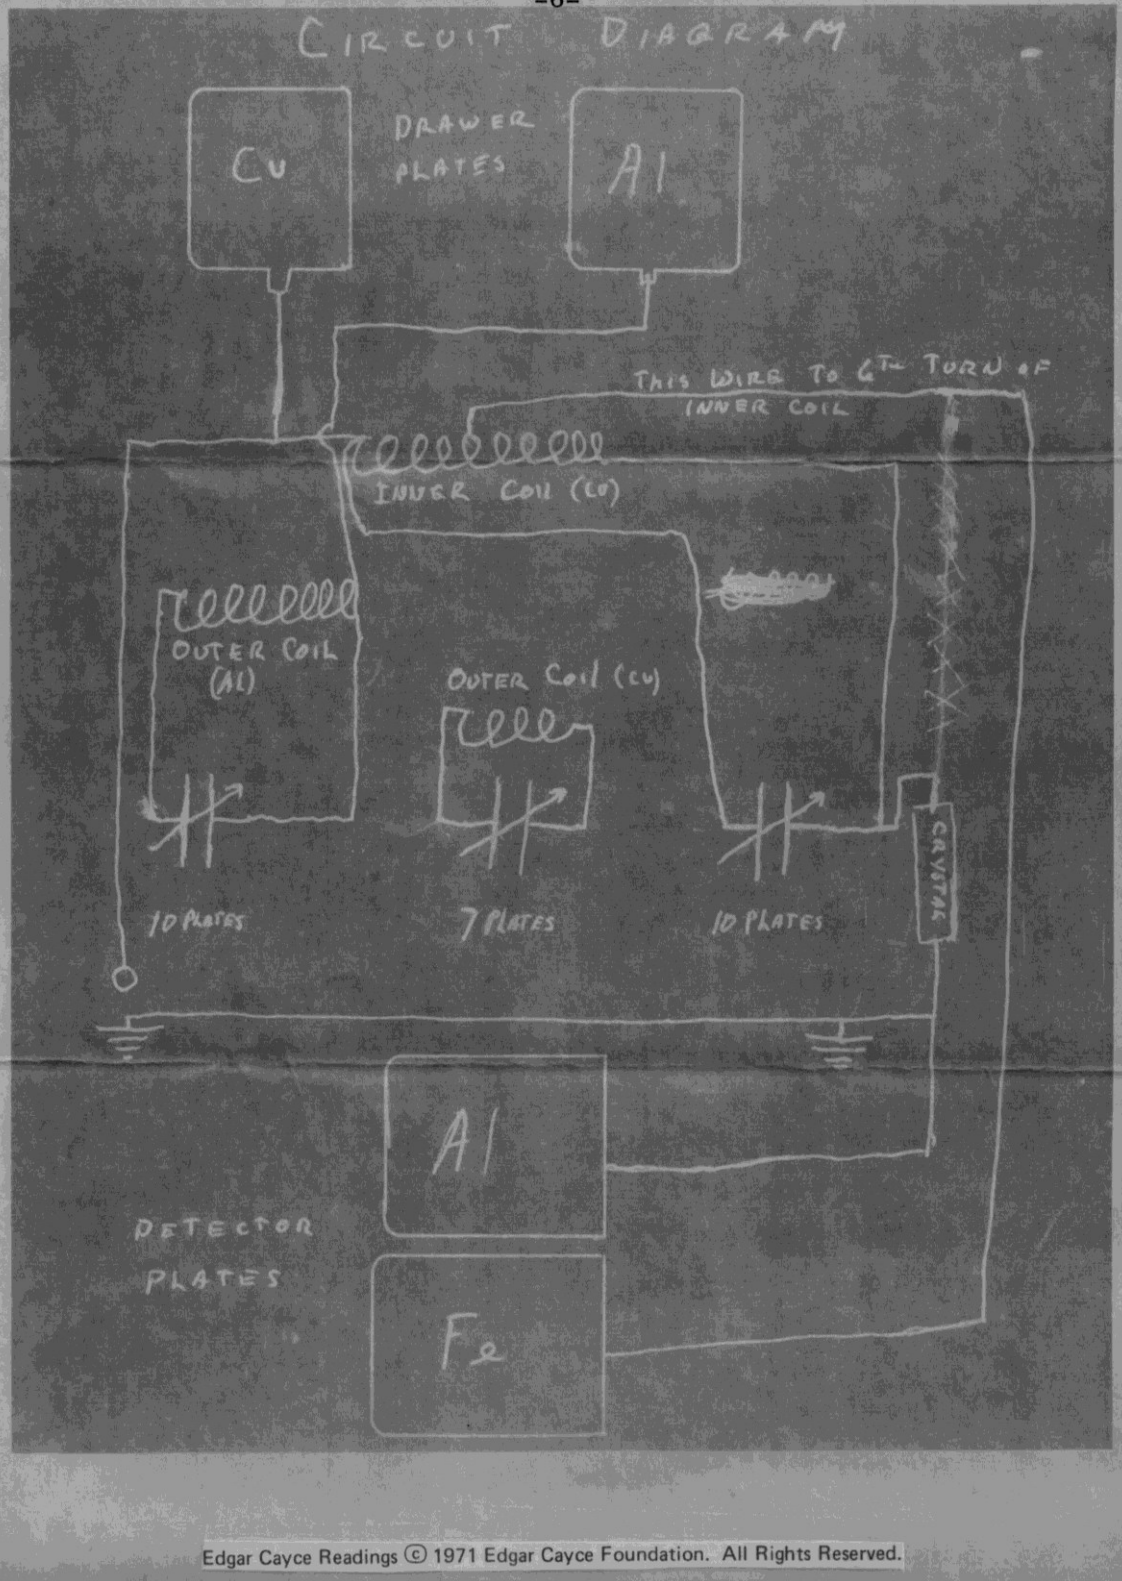 -6-
CIRCUIT DIAGRAM
Cu
DRAWER
PLATES
Al
THIS WIRE TO 6TH TURN OF
INNER COIL
INNER COIL (CU)
OUTER COIL
(AL)
OUTER COIL (CU)
CRYSTAL
10 PLATES
7 PLATES
10 PLATES
Al
DETECTOR
PLATES
Fe
Edgar Cayce Readings © 1971 Edgar Cayce Foundation. All Rights Reserved.